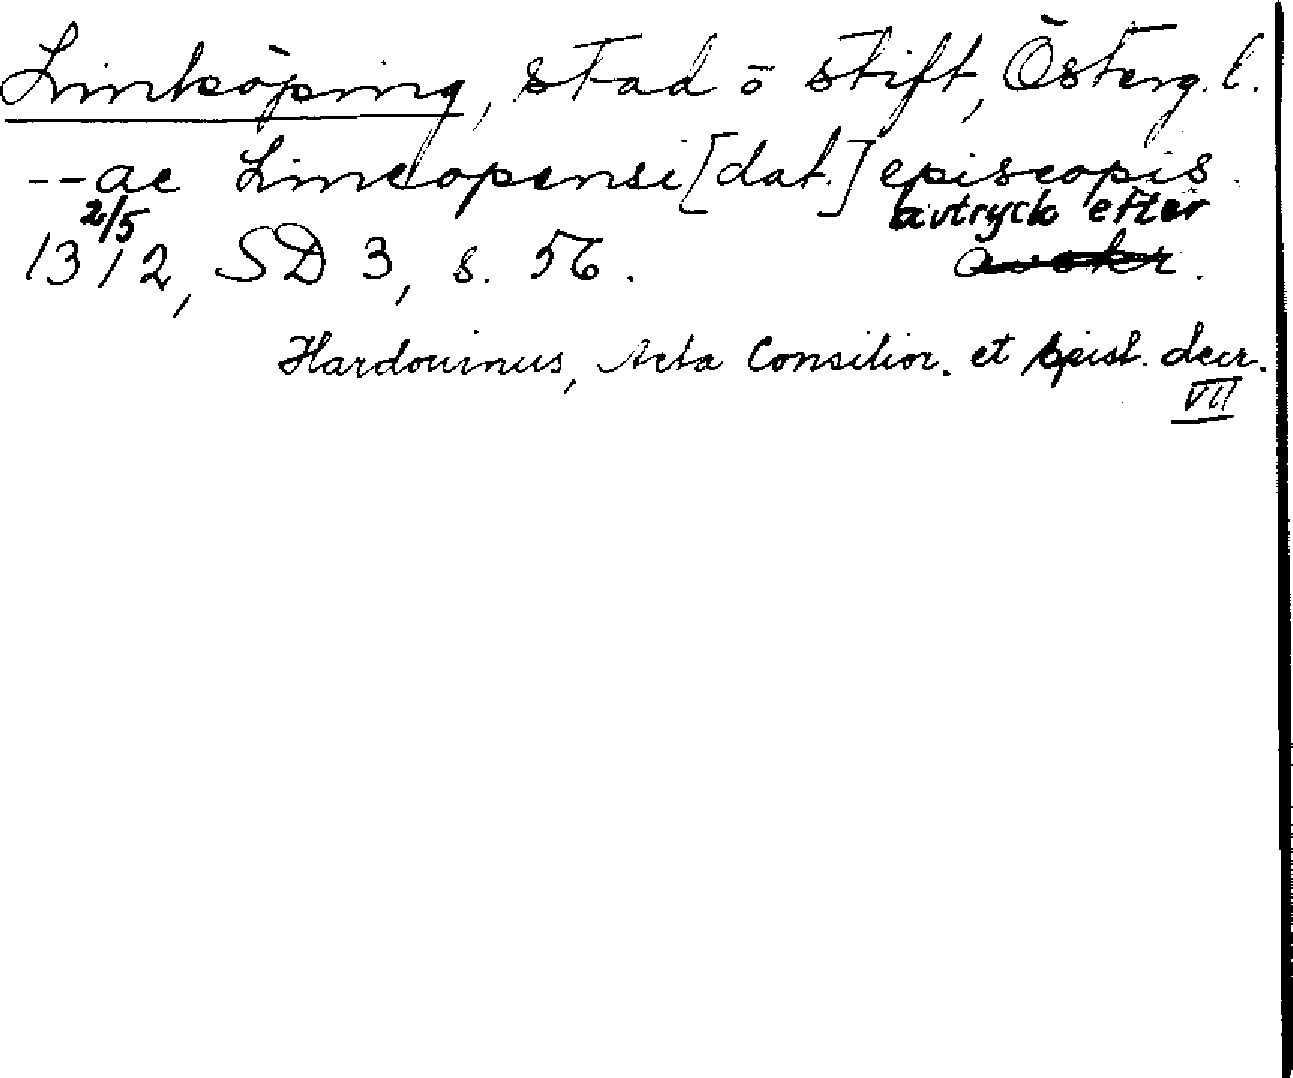 Linköping, stad o stift, Österg. l.
-- ac Lincopensi [dat.] episcopis.
2/5 avtryck efter
1312, SD 3, s. 56. avskr.
Hardouinus, Acta Consilior. et Epist. decr.
VII